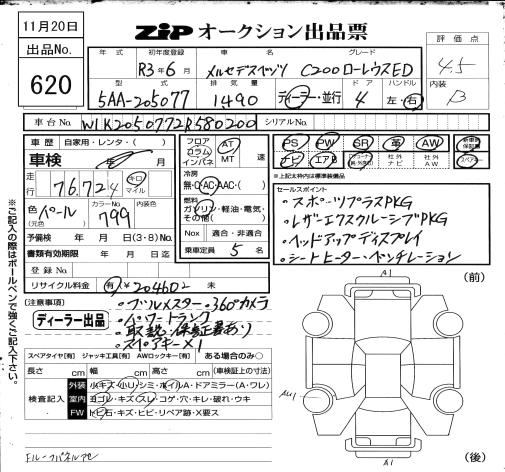 11月20日
ZIP オークション出品票
出品No.
620
年式
初年度登録
車名
グレード
評価点
R3年6月
メルセデスベンツ
C200ローレウスED
4.5
型式
排気量
ドア
ハンドル
内装
5AA-205077
1490
ディーラー・並行
4
左・右
B
車台No.
W1K2050772R580200
シリアルNo.
車歴
自家用・レンタ・( )
車検
年 月
走行
76,724
キロ
マイル
色
(元色)
パール
カラーNo.
799
内装色
予備検 年 月 日(3・8)No.
書類有効期限 年 月 日迄
登録No.
リサイクル料金
有(¥ 204602 )
フロア
コラム
インパネ
AT
MT
速
冷房
無・C・AC・AAC・( )
燃料
ガソリン・軽油・電気・
その他( )
Nox
適合・非適合
乗車定員
5名
PS
PW
SR
革
AW
新車時保証書
ナビ
エアB
社外ナビ
社外AW
スペアキー
※上記太枠内は標準装備品
セールスポイント
・スポーツプラスPKG
・レザーエクスクルーシブPKG
・ヘッドアップディスプレイ
・シートヒーター・ベンチレーション
注意事項
ディーラー出品
・ブルメスター・360°カメラ
・パワートランク
・取説・保証書あり
・スペアキー×1
スペアタイヤ[有] ジャッキ工具[有] AWロックキー[有] ある場合のみ○
長さ cm 幅 cm 高さ cm (車検証上の寸法)
検査記入
外装
小キズ・小リ・シミ・ホイルA・ドアミラー(A・ワレ)
室内
ヨゴレ・キズ・スレ・コゲ・穴・キレ・破れ・ウキ
FW
トビ石・キズ・ヒビ・リペア跡・X要ス
※ご記入の際はボールペンで強くご記入下さい。
(前)
A1
(後)
A1